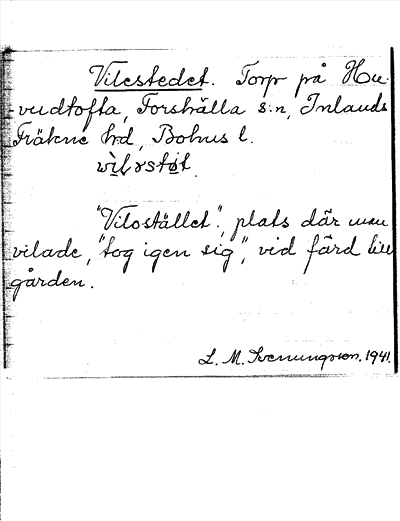 Vilestedet. Torp på Hu-
vudtofta, Forshälla s:n, Inlands
Fräkne hd, Bohus l.

"Vilostället", plats där man
vilade, "tog igen sig", vid färd till
gården.
L. M. Svenungsson. 1941.